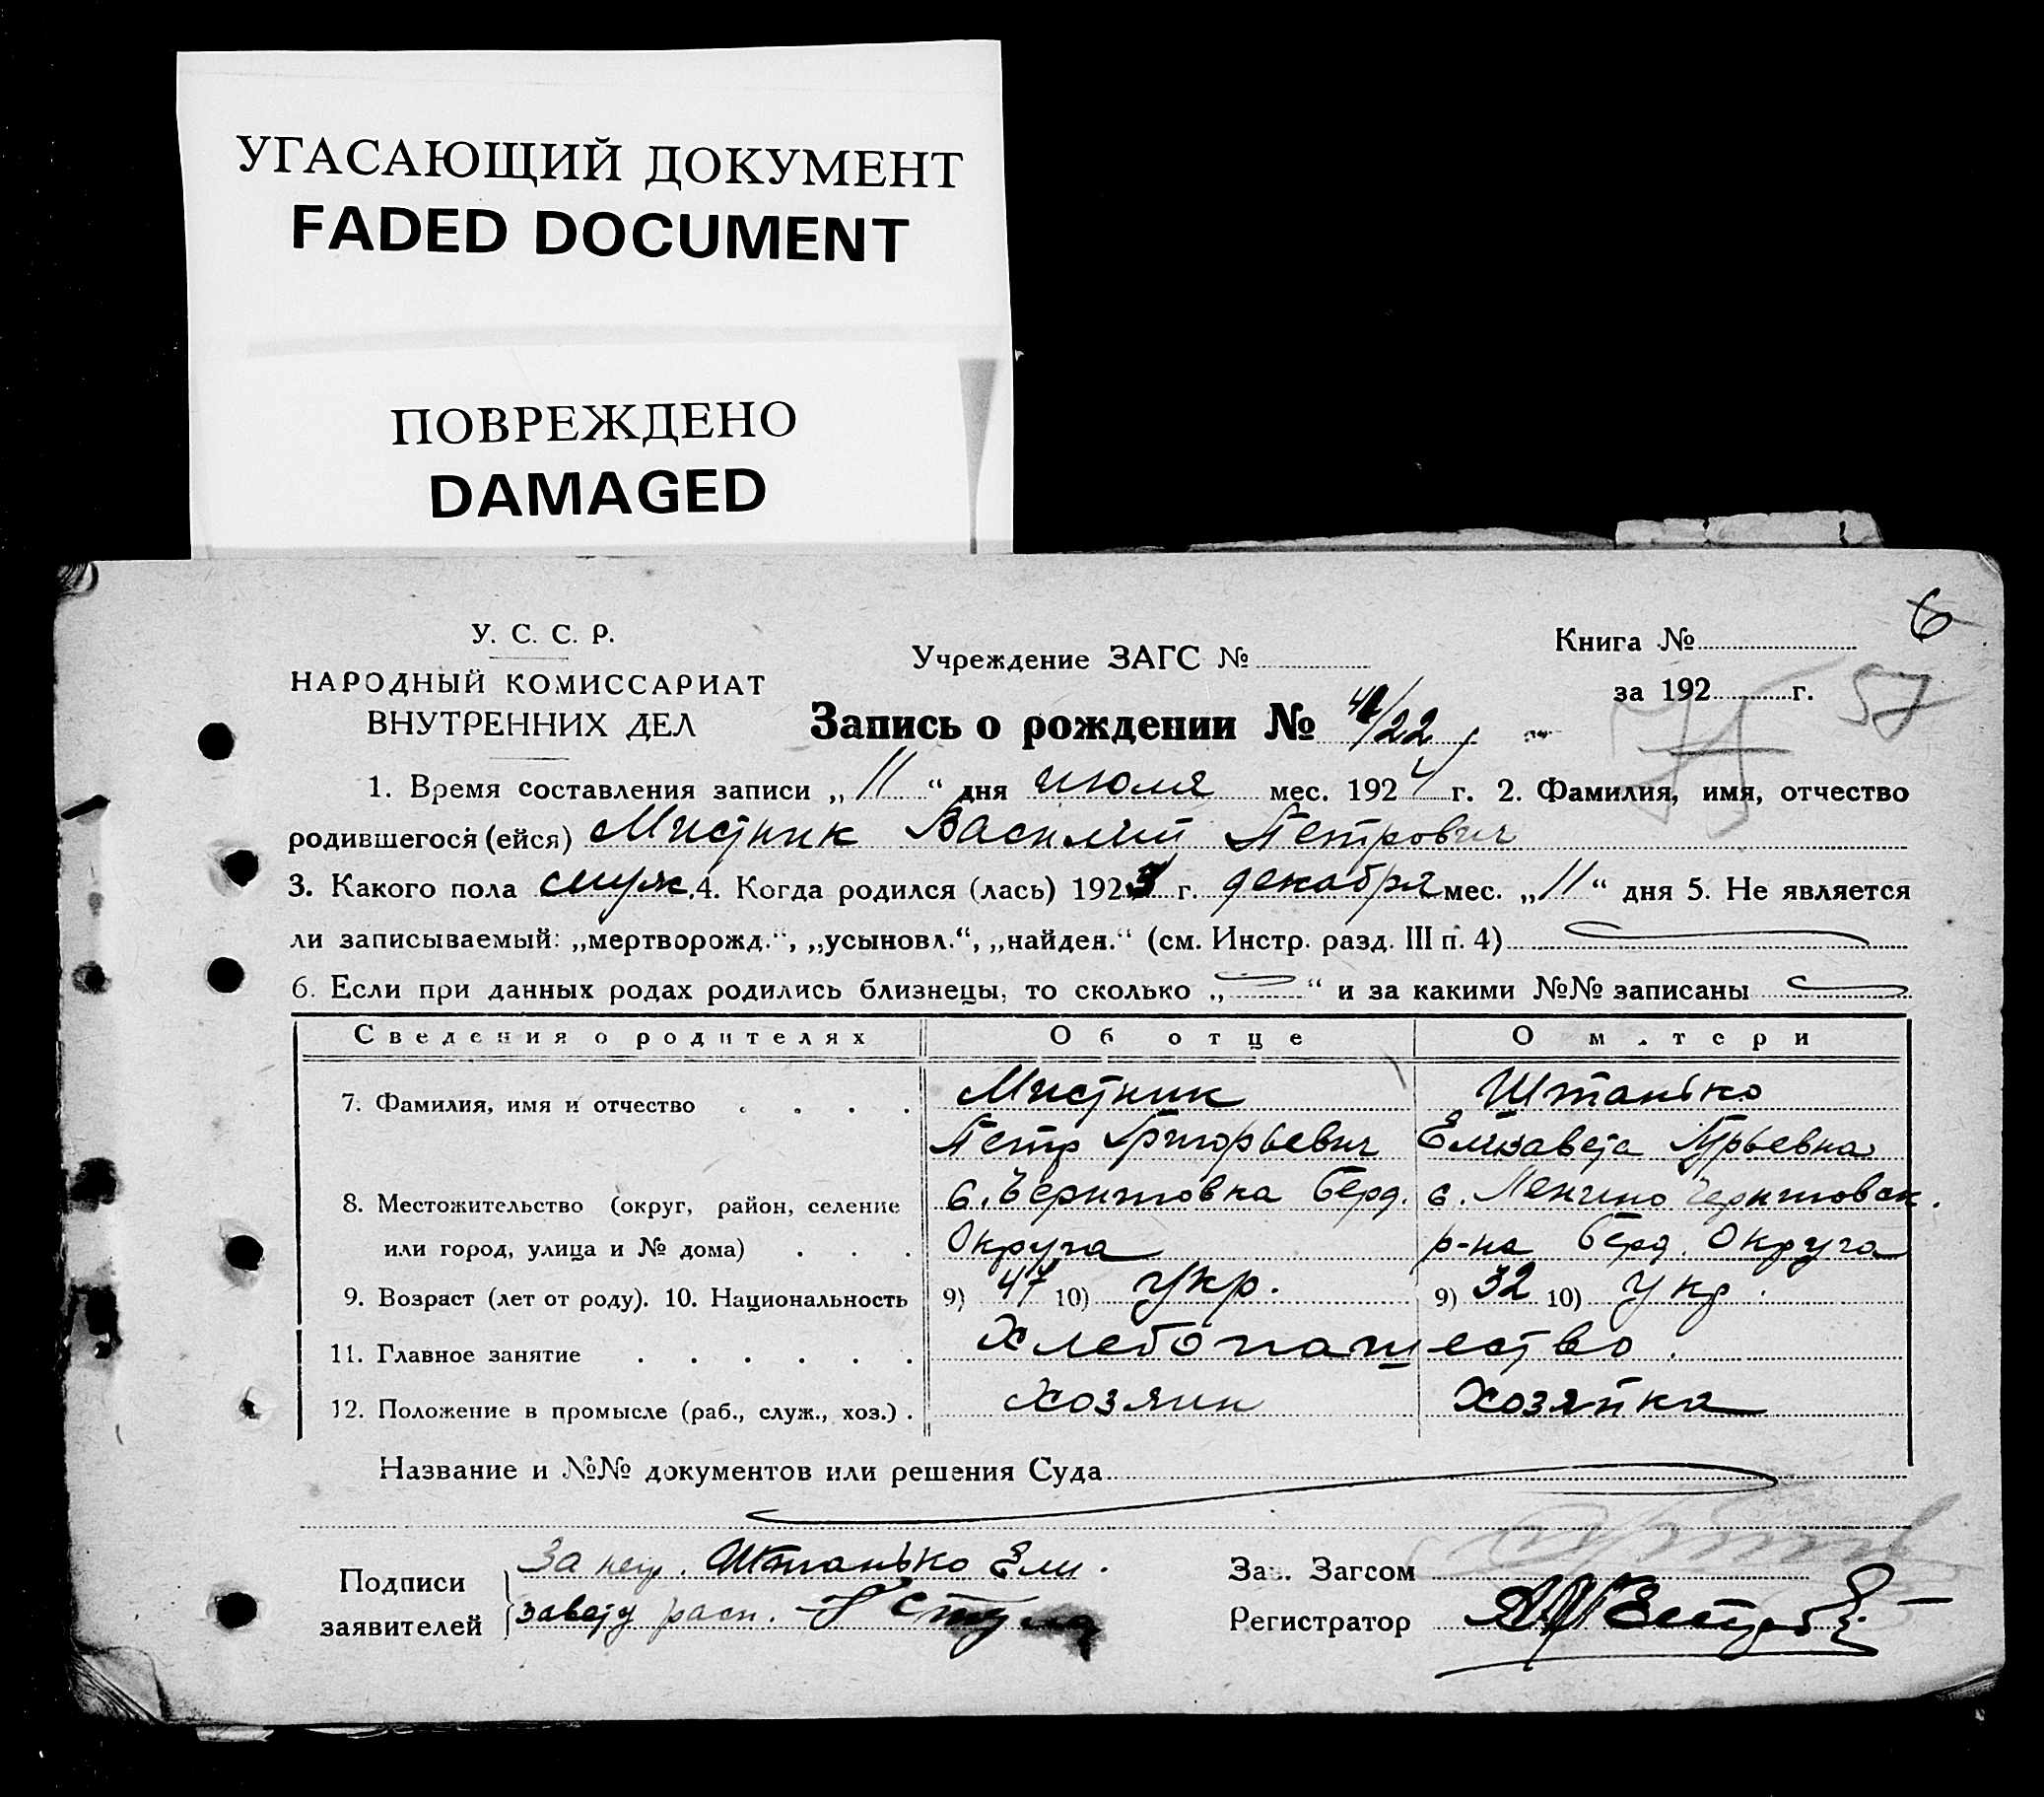 УГАСАЮЩИЙ ДОКУМЕНТ
FADED DOCUMENT
ПОВРЕЖДЕНО
DAMAGED
6
У. С. С. Р.
НАРОДНЫЙ КОМИССАРИАТ
ВНУТРЕННИХ ДЕЛ
Учреждение ЗАГС №
Книга №
за 192 г. 57
Запись о рождении № /22
75
1. Время составления записи „11“ дня июля мес. 1924 г. 2. Фамилия, имя, отчество
родившегося (ейся) Мистник Василий Петрович
3. Какого пола муж. 4. Когда родился (лась) 1923 г. декабря мес. „11“ дня 5. Не является
ли записываемый: „мертворожд.“, „усыновл.“, „найден.“ (см. Инстр. разд. III п. 4)
6. Если при данных родах родились близнецы, то сколько „ “ и за какими №№ записаны
Сведения о родителях Об отце О м.тери
7. Фамилия, имя и отчество . . . . Мистник Штанько
Петр Григорьевич Елизавета Гурьевна
8. Местожительство (округ, район, селение с. Черниговка Берд. с. Ленино Черниговск.
или город, улица и № дома) . . . Округа р-на Берд. Округа
9. Возраст (лет от роду). 10. Национальность 9) 47 10) Укр. 9) 32 10) Укр.
11. Главное занятие . . . . . . Хлебопашество.
12. Положение в промысле (раб., служ., хоз.) . Хозяин Хозяйка
Название и №№ документов или решения Суда
Подписи За негр. Штанько Ели.
заявителей завету расп.
Зав. Загсом
Регистратор